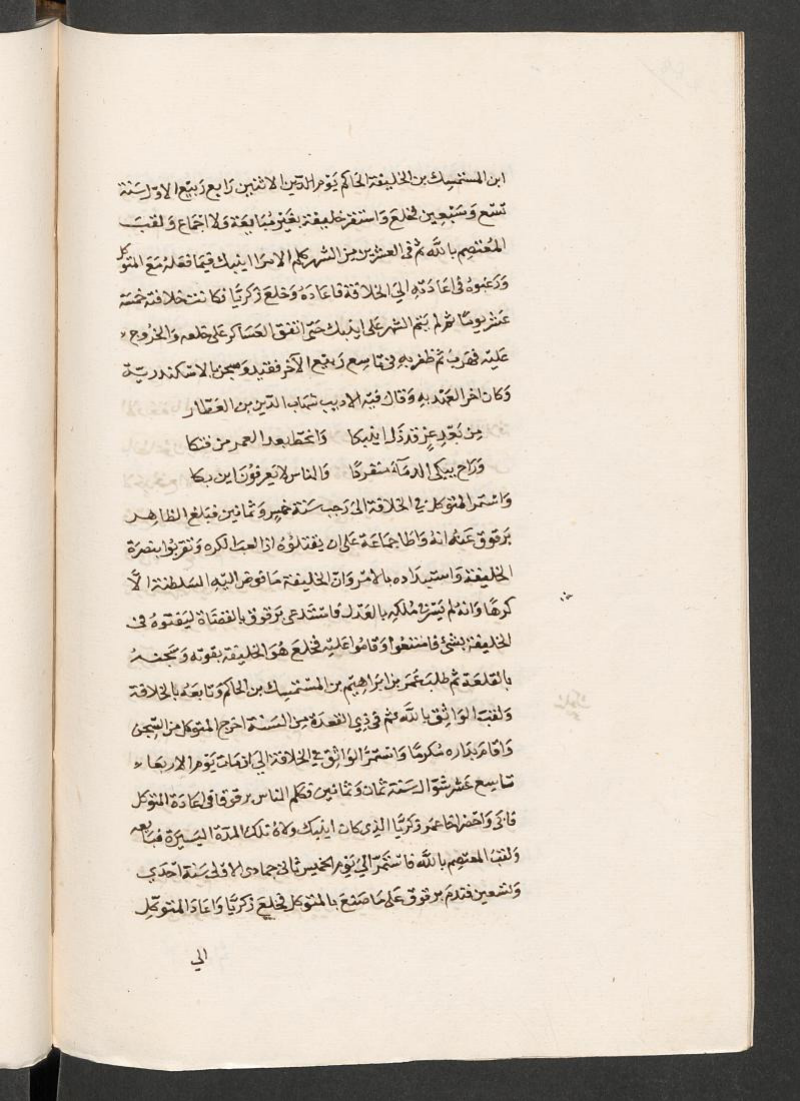 ابن المستمسك بن الخليفة الحاكم يوم الاثنين رابع ربيع الاول سنة
تسع وسبعين فخلع واستقر خليفة بغير مبايعة ولا اجماع ولقب
المعتصم بالله ثم فى العشرين من الشهر كلم الامرا اينبك فيما فعله مع المتوكل
ورغبوه فى اعادته الي الخلافة فاعاده وخلع زكريا فكانت خلافته خمسة
عشر يوما ثم لم يتم الشهر على اينبك حتى اتفق العساكر على خلعه والخروج
عليه فهرب ثم ظفر به فى تاسع ربيع الآخر فقيد وسجن بالاسكندرية
وكان اخر العهد به وقال فيه الاديب شهاب الدين بن العطار
من بعد عز قد ذل اينبكا وانحط بعد العمر من فتكا
وراح يبكى الدماء منفردا والناس لا يعرفون اين بكا
واستمر المتوكل في الخلافة الى رجب سنة خمس وثمانين فبلغ الظاهر
برقوق عنه انه واطا جماعة على ان يقتلوه اذا لعب الكره ونقر بوا بنصرة
الخليفة واستبداده بالامر وان الخليفة ما فوض اليه السلطنة الا
كرها وانه لم يسر فى ملكه بالعدل فاستدعى برقوق بالقضاة ليفتوه فى
الخليفة بشئ فامتنعوا وقاموا عليه فخلع هو الخليفة بقوته وسجنه
بالقلعة ثم طلب عمر بن ابراهيم بن المستمسك بن الحاكم وتابعه بالخلافة
ولقب الواثق بالله ثم فى ذي القعدة من السنة اخرج المتوكل من السجن
واقام بداره مكرما واستمر الواثق في الخلافة الي ان مات يوم الاربعا
تاسع عشر شوال سنة ثمان وثمانين فكلم الناس برقوقا فى اعادة المتوكل
فابى واحضر اخا عمر زكريا الذي كان اينبك ولاه تلك المدة اليسيرة فبايعه
ولقب المعتصم بالله فاستمر الي يوم الخميس ثانى جمادى الاولى سنة احدي
وتسعين فندم برقوق على ما صنع بالمتوكل فخلع زكريا واعاد المتوكل
الي